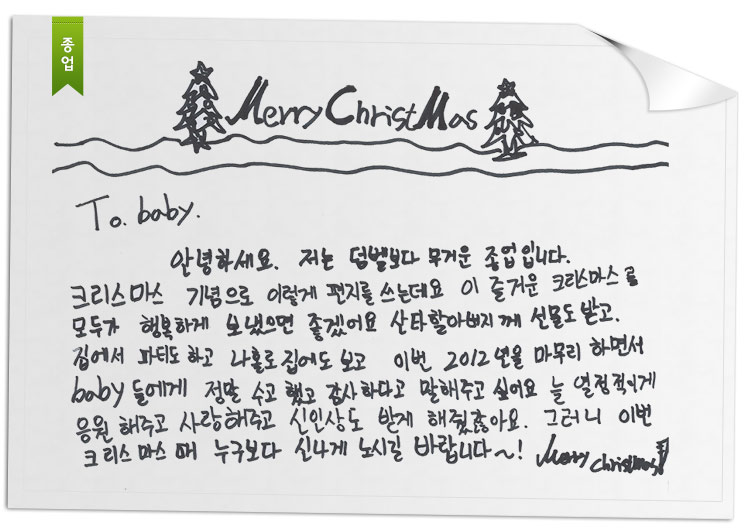 종업
Merry ChristMas
To. baby.
안녕하세요. 저는 덤벨보다 무거운 종업입니다.
크리스마스 기념으로 이렇게 편지를 쓰는데요 이 즐거운 크리스마스를
모두가 행복하게 보냈으면 좋겠어요 산타할아버지께 선물도 받고.
집에서 파티도 하고 나홀로 집에도 보고 이번 2012년을 마무리 하면서
baby들에게 정말 수고했고 감사하다고 말해주고 싶어요 늘 열정적이게
응원 해주고 사랑해주고 신인상도 받게 해줬잖아요. 그러니 이번
크리스마스 때 누구보다 신나게 노시길 바랍니다~! Merry christmas!